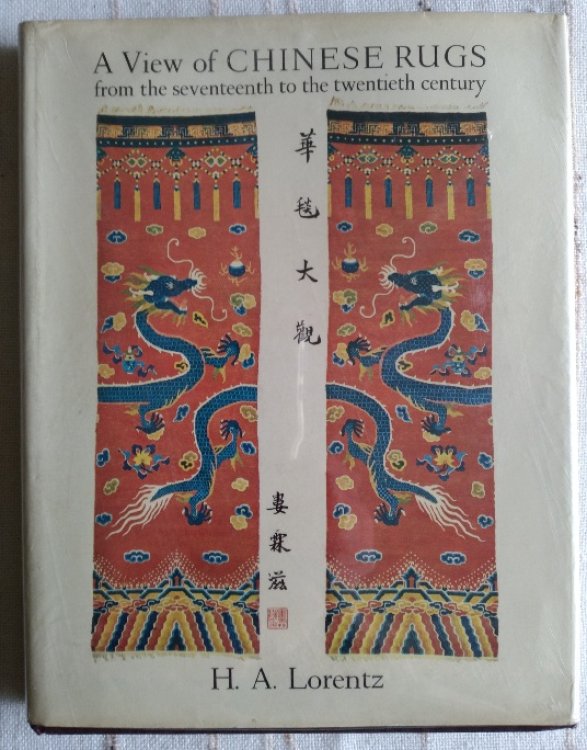 A View of CHINESE RUGS
from the seventeenth to the twentieth century
華毯大觀
婁霖滋
H. A. Lorentz